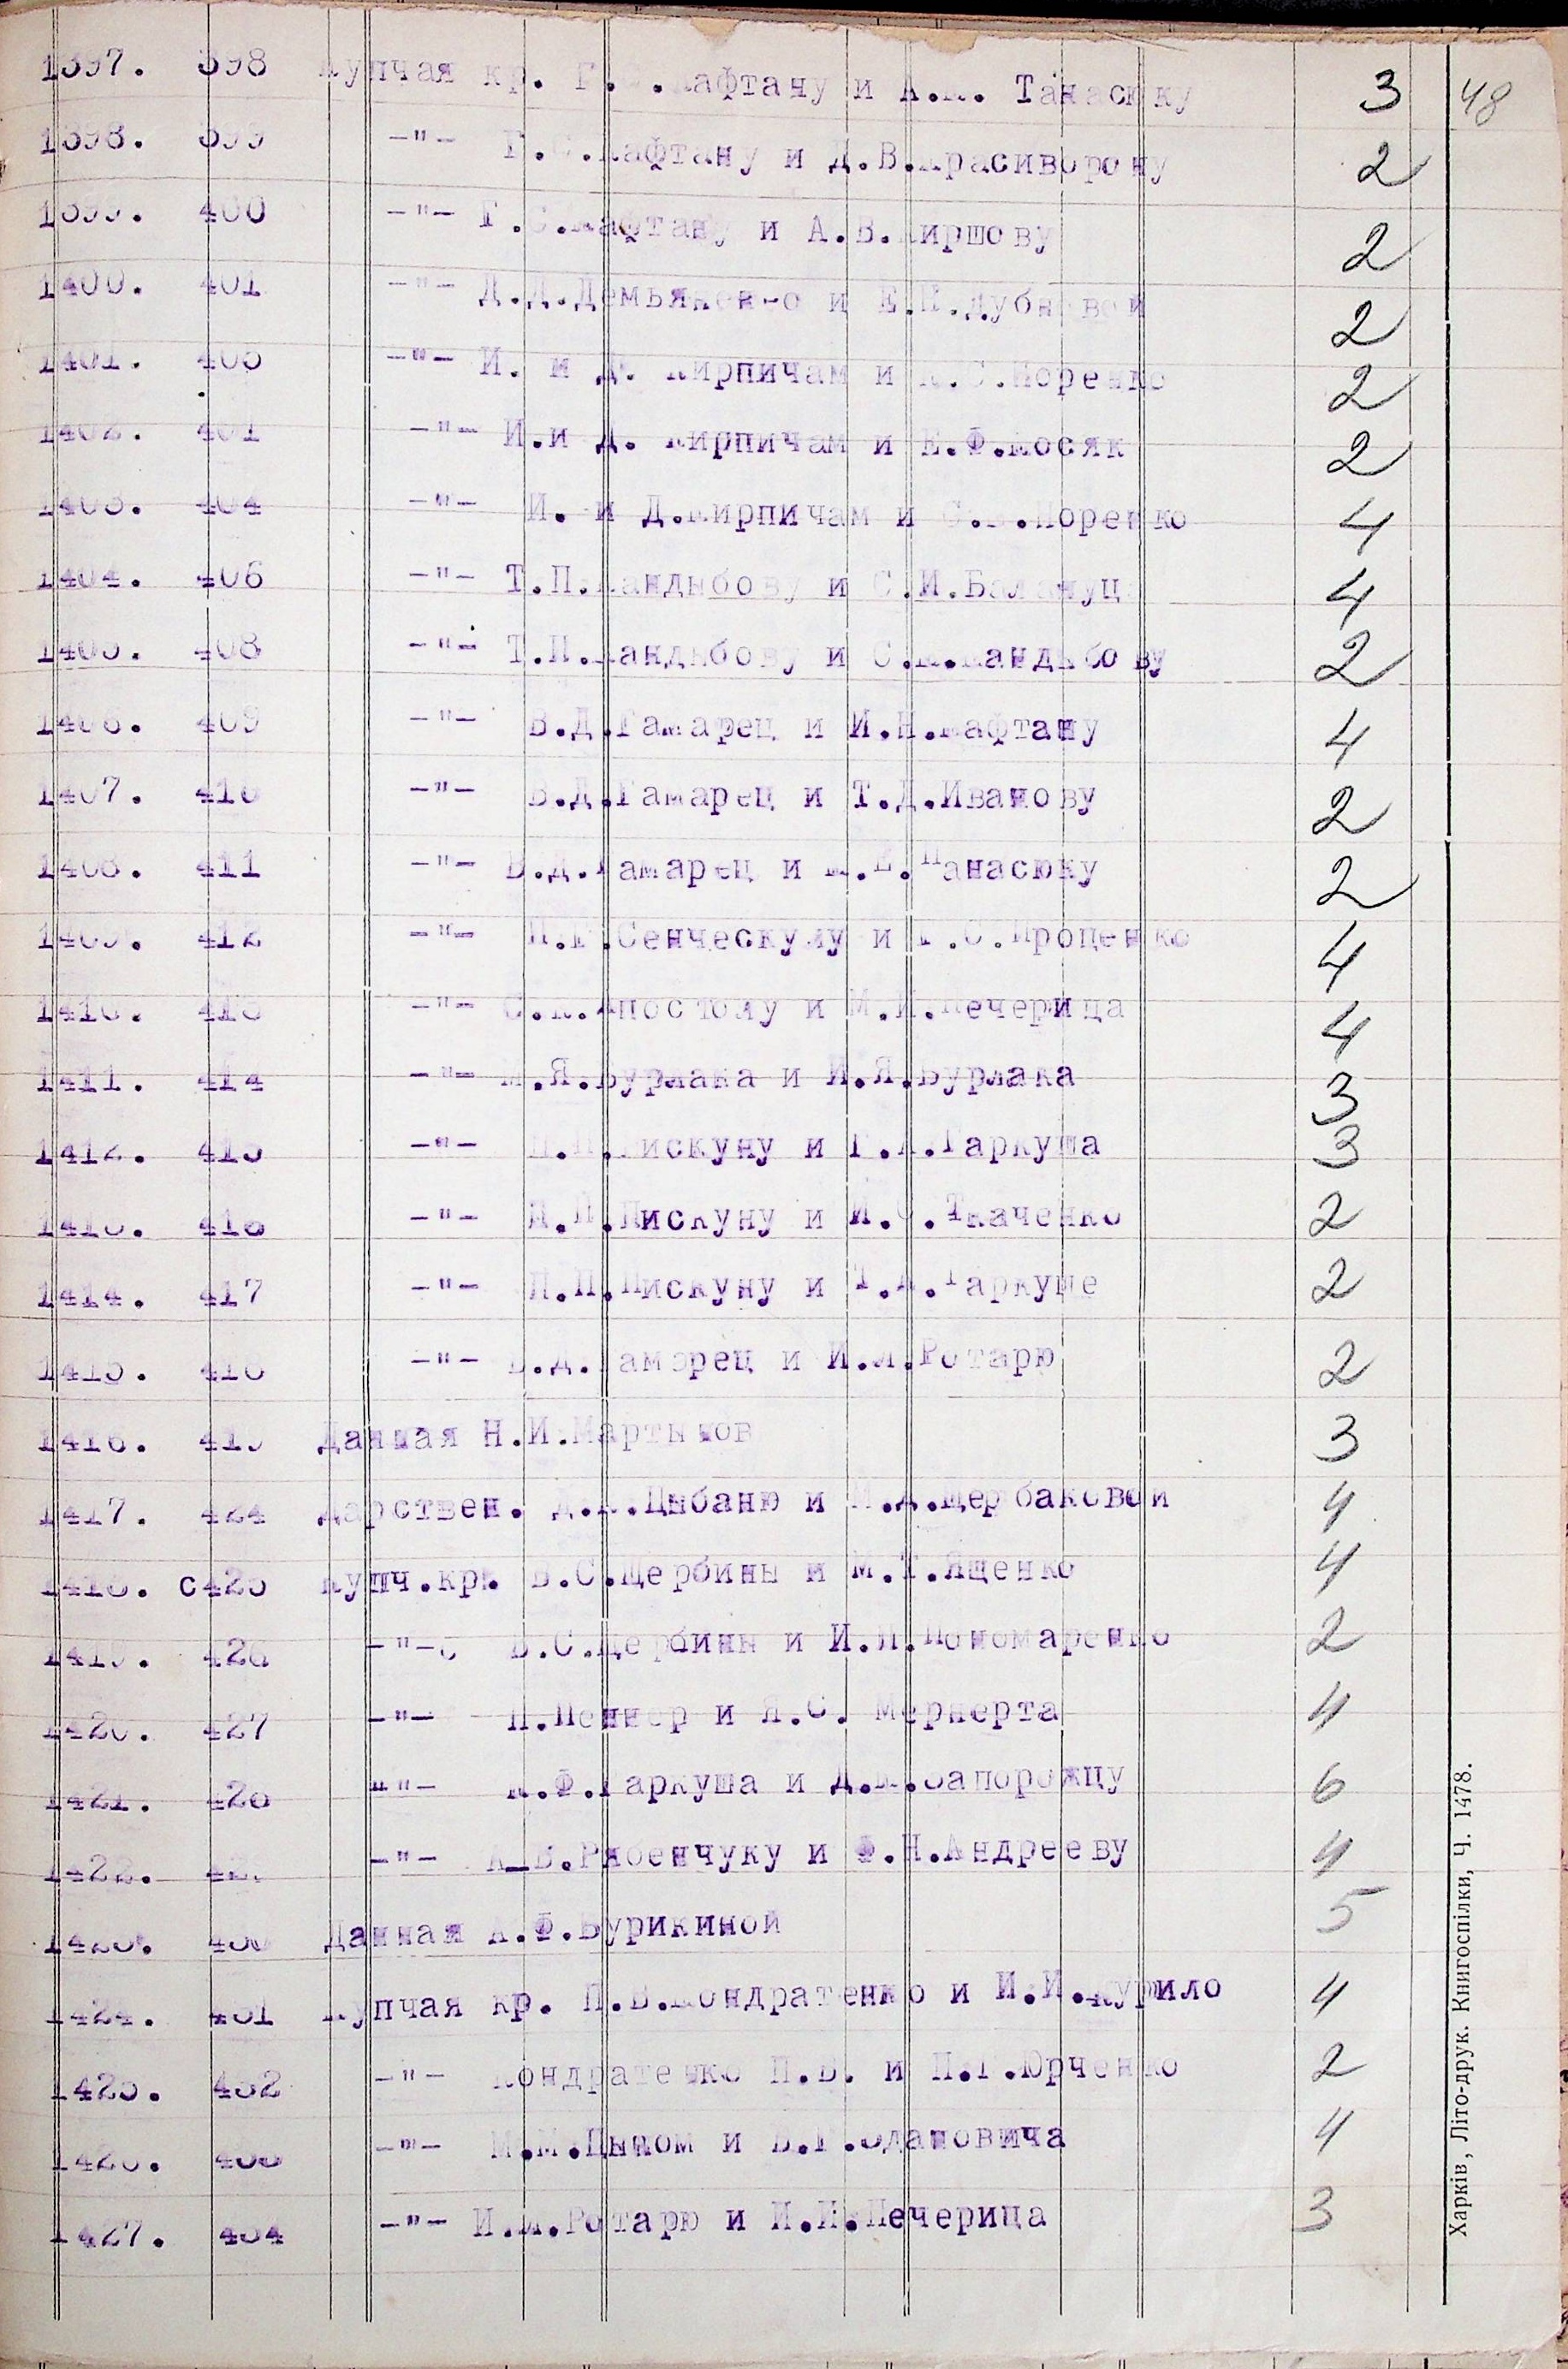 48
1397. 398 Купчая кр. Г. .Кафтану и А.К. Танасюку 3
1398. 399 -"- Г.С.Кафтану и Д.В.Красиворону 2
1399. 400 -"- Г.С.Кафтану и А.В.Киршову 2
1400. 401 -"- Д.Д.Демьяненко и Е.П.Дубновой 2
1401. 403 -"- И. и Д. Кирпичам и К.С.Норенко 2
1402. 401 -"- И.и Д. Кирпичам и Е.Ф.Косяк 2
1403. 404 -"- И. и Д.Кирпичам и С. .Норенко 4
1404. 406 -"- Т.П.Кандыбову и С.И.Балануца 4
1405. 408 -"- Т.П.Кандыбову и С.К.Кандыбову 2
1406. 409 -"- В.Д.Гамарец и И.Н.Кафтану 4
1407. 410 -"- В.Д.Гамарец и Т.Д.Иванову 2
1408. 411 -"- В.Д.Гамарец и К.Е.Панасюку 2
1409. 412 -"- П.Г.Сенческулу и Г.С.Проценко 4
1410. 413 -"- С.К.Апостолу и М.И.Печерица 4
1411. 414 -"- М.Я.Бурлака и И.Я.Бурлака 3
1412. 415 -"- П.П.Пискуну и Г.А.Гаркуша 3
1413. 416 -"- П.П.Пискуну и И.С.Ткаченко 2
1414. 417 -"- П.П.Пискуну и Т.А.Гаркуше 2
1415. 418 -"- В.Д.Гаморец и И.М.Ротарю 2
1416. 419 Данная Н.И.Мартынов 3
1417. 424 Дарствен. Д.К.Цыбаню и М.А.Щербаковой 4
1418. с425 Купч.кр. В.С.Щербины и М.Т.Ященко 4
1419. 426 -"- В.С.Щербины и И.П.Пономаренко 2
1420. 427 -"- П.Пеннер и Я.С. Мернерта 4
1421. 428 ""- К.Ф.Гаркуша и Д.К.Запорожцу 6
1422. 42 -"- А_В.Рябенчуку и Ф.Н.Андрееву 4
1423. 430 Данная А.Ф.Бурикиной 5
1424. 431 Купчая кр. П.В.Кондратенко и И.И.Курило 4
1425. 432 -"- Кондратенко П.В. и П.Г.Юрченко 2
1426. 433 -"- М.М.Цыпом и В.Г.Здановича 4
1427. 434 -"- И.М.Ротарю и И.И.Печерица 3
Харків, Літо-друк. Книгоспілки, Ч. 1478.